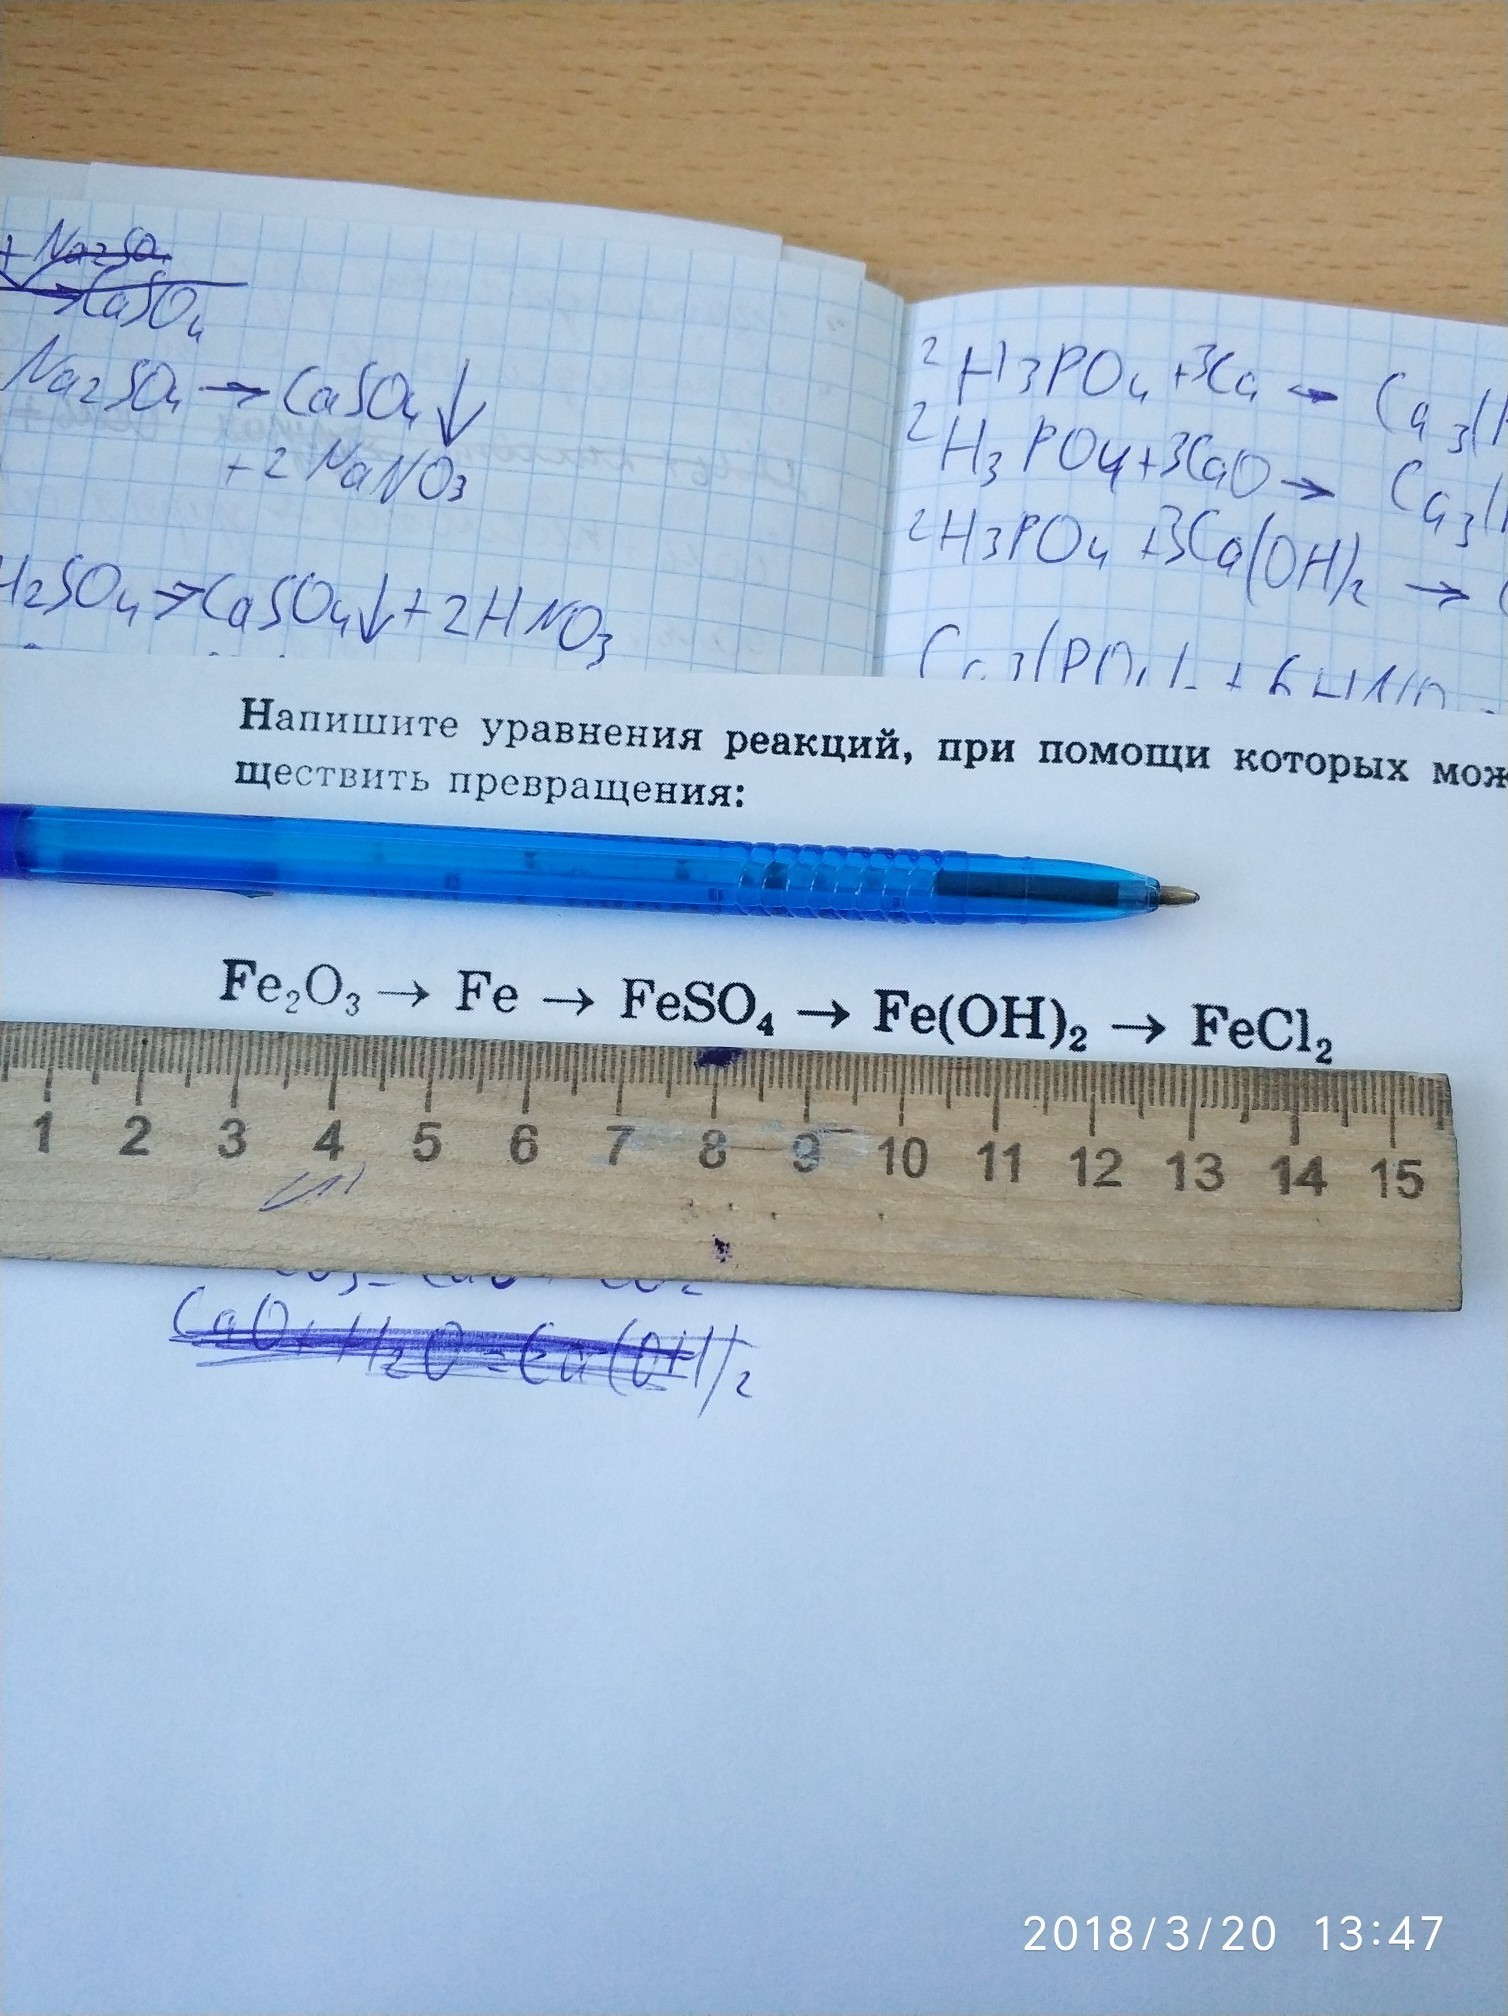 + Na2SO4
→ CaSO4
Na2SO4 → CaSO4 ↓
+ 2 NaNO3
H2SO4 → CaSO4↓ + 2HNO3
2H3PO4 + 3Ca → Ca3(P
2H3PO4 + 3CaO → Ca3(P
2H3PO4 + 3Ca(OH)2 →
Напишите уравнения реакций, при помощи которых мож
ществить превращения:
Fe₂O₃ → Fe → FeSO₄ → Fe(OH)₂ → FeCl₂
1 2 3 4 5 6 7 8 9 10 11 12 13 14 15
CaO + H2O = Ca(OH)2
2018/3/20 13:47